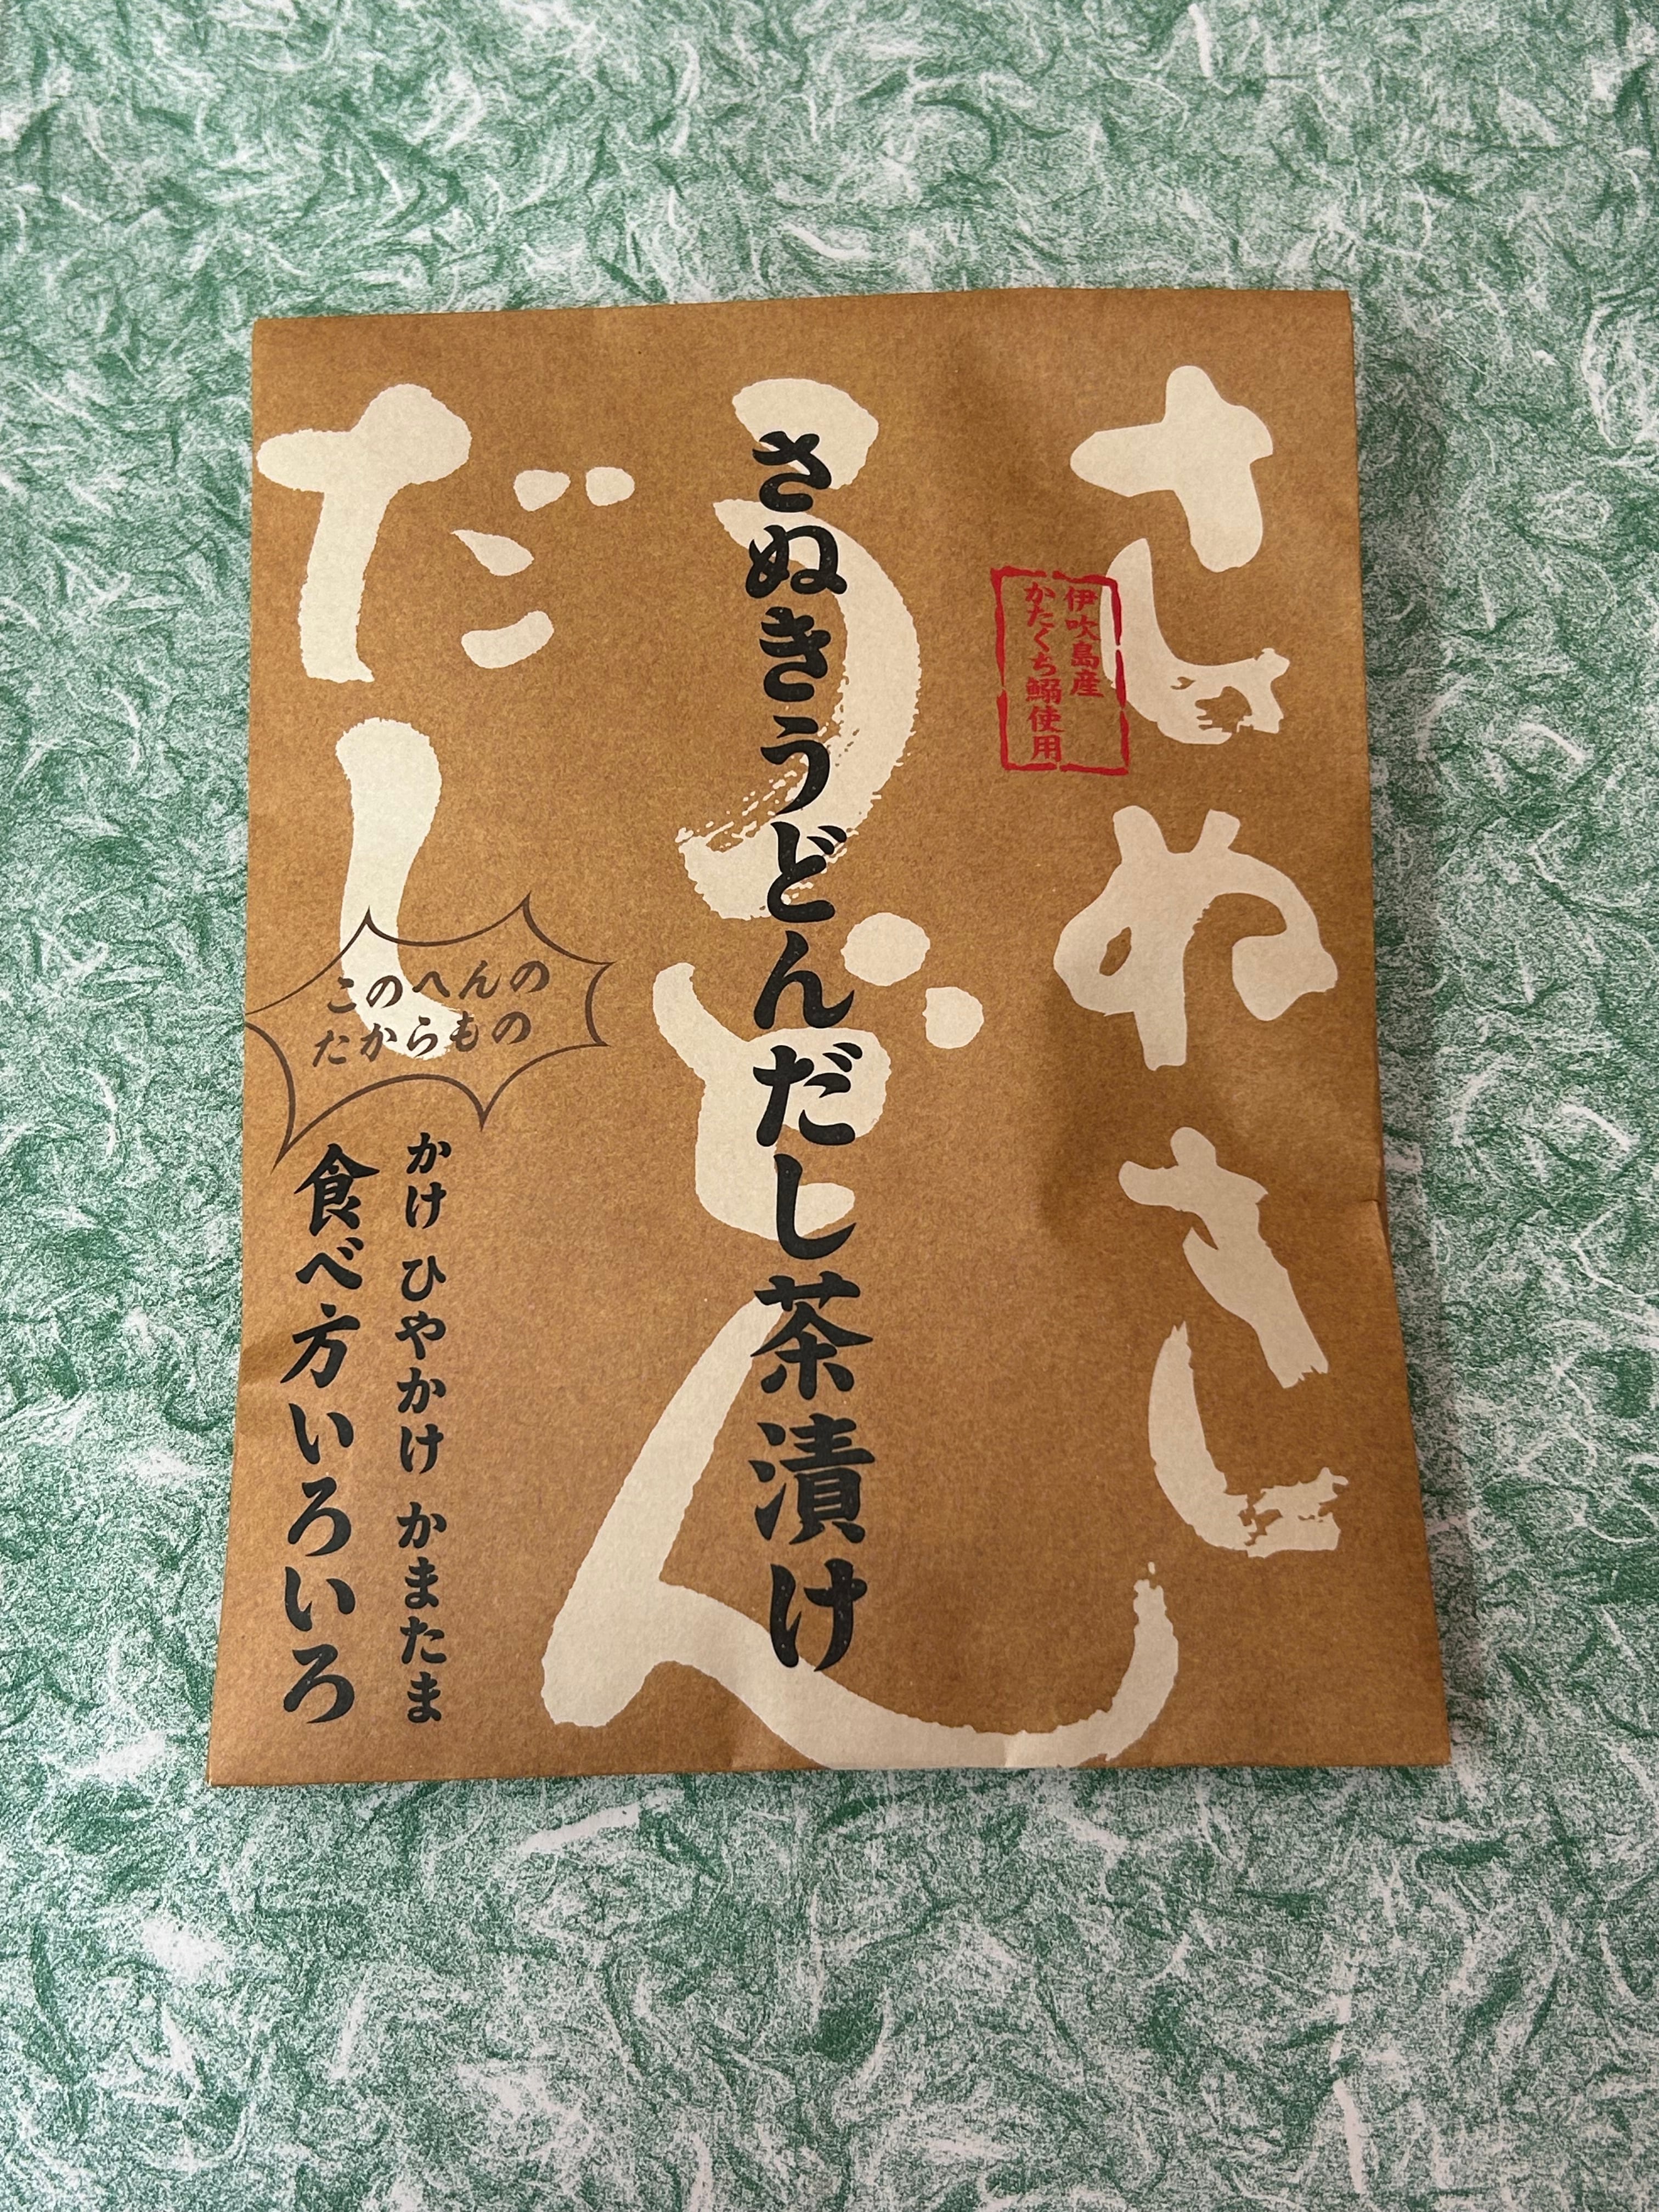 さぬき
うどん
だし
伊吹島産
かたくち鰯使用
さぬきうどんだし茶漬け
このへんの
たからもの
かけ ひやかけ かまたま
食べ方いろいろ